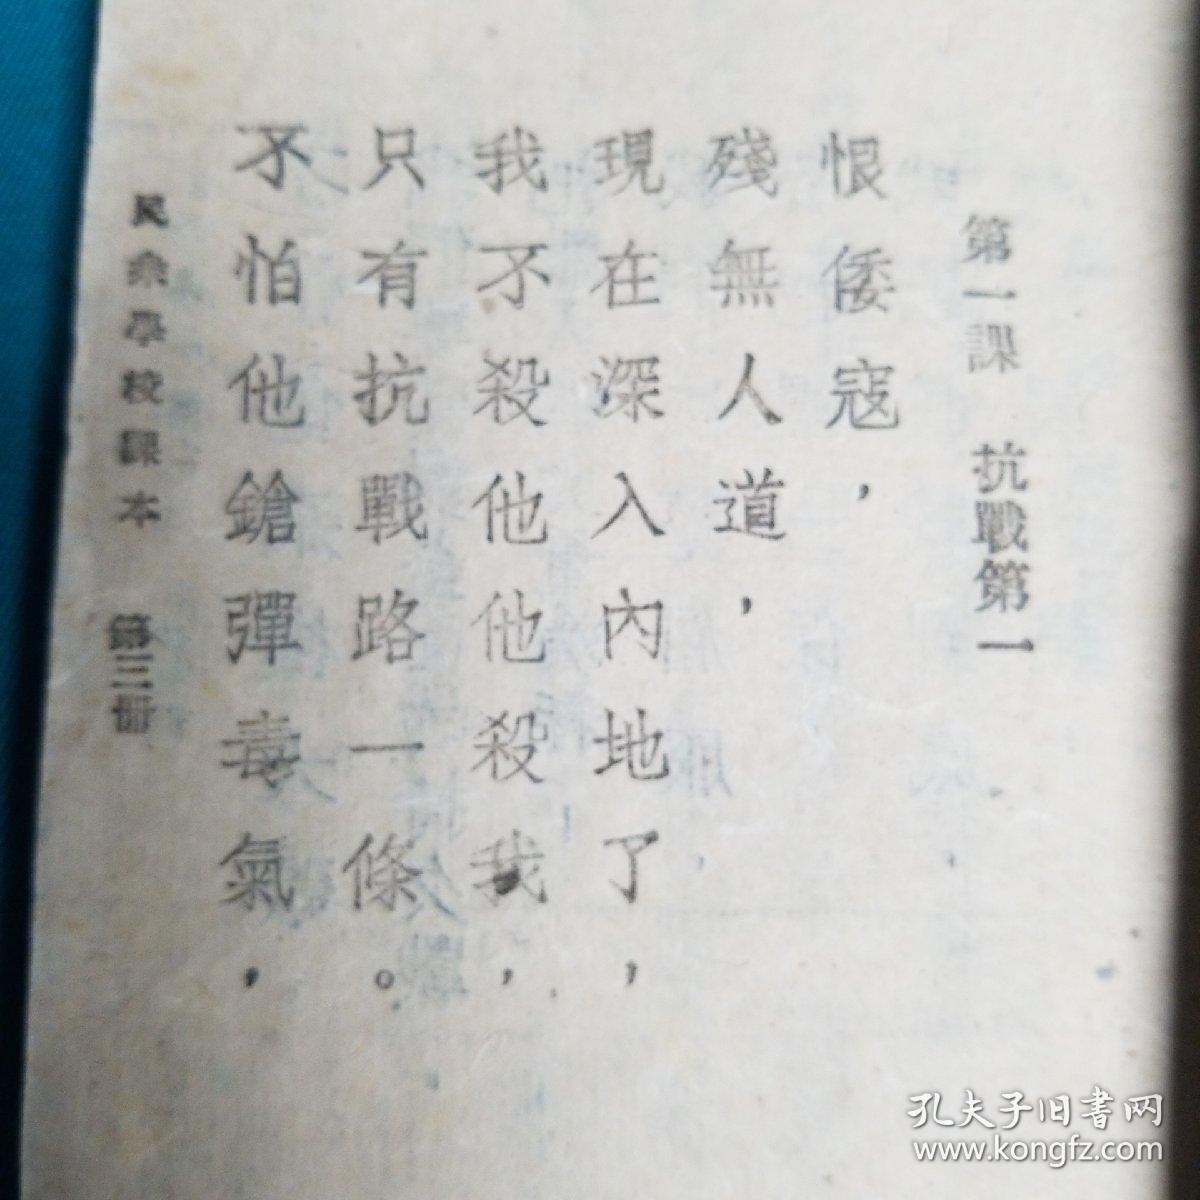 第一課　抗戰第一
恨倭寇，
殘無人道，
現在深入內地了，
我不殺他他殺我，
只有抗戰路一條。
不怕他鎗彈毒氣，
民眾學校課本　第三冊
孔夫子旧书网
www.kongfz.com